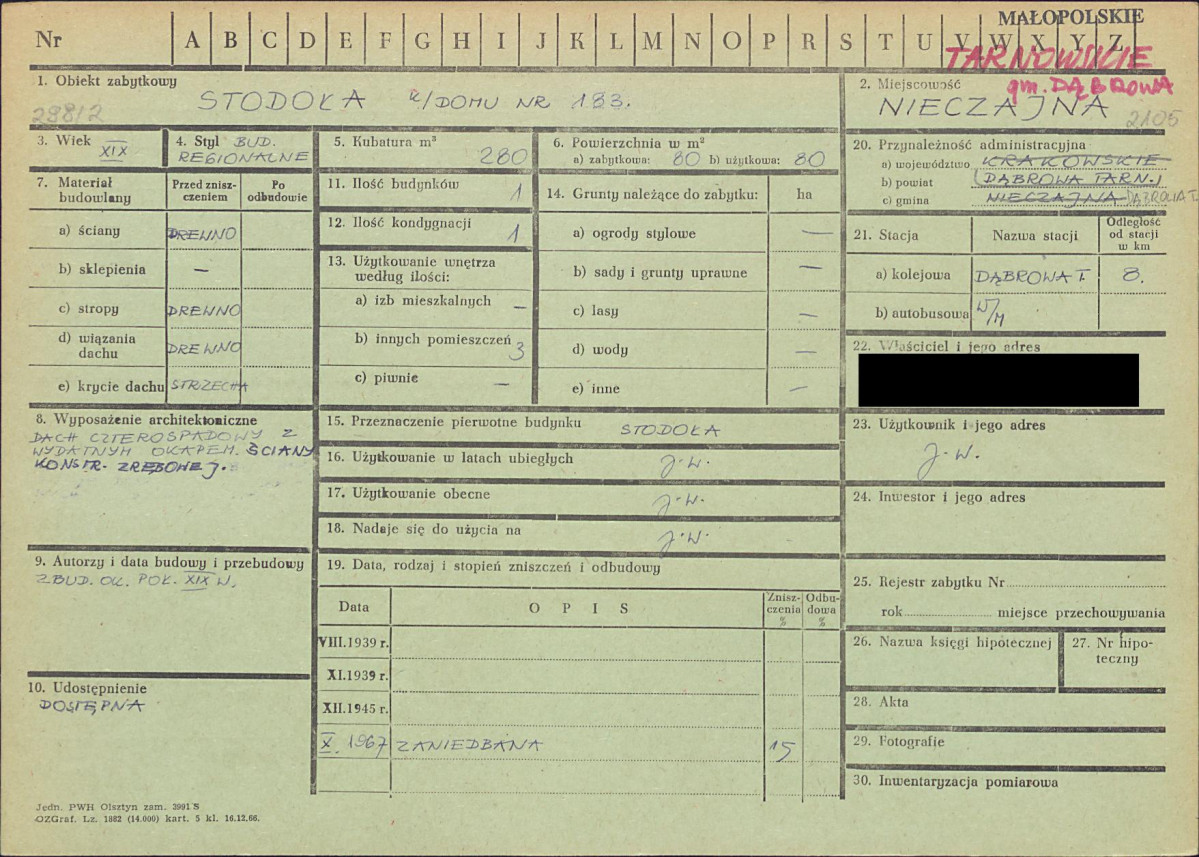 MAŁOPOLSKIE
Nr A B C D E F G H I J K L M N O P R S T U V W X Y Z
TARNOWSKIE
gm. DĄBROWA
1. Obiekt zabytkowy
STODOŁA k/DOMU NR 183.
2882
2. Miejscowość
NIECZAJNA
2105
3. Wiek XIX
4. Styl BUD. REGIONALNE
5. Kubatura m³
280
6. Powierzchnia w m²
a) zabytkowa: 80 b) użytkowa: 80
7. Materiał budowlany
Przed zniszczeniem
Po odbudowie
a) ściany DREWNO
b) sklepienia —
c) stropy DREWNO
d) wiązania dachu DREWNO
e) krycie dachu STRZECHA
8. Wyposażenie architektoniczne
DACH CZTEROSPADOWY Z
WYDATNYM OKAPEM. ŚCIANY
KONSTR. ZRĘBOWEJ.
9. Autorzy i data budowy i przebudowy
ZBUD. OK. POŁ. XIX W.
10. Udostępnienie
DOSTĘPNA
11. Ilość budynków 1
12. Ilość kondygnacji 1
13. Użytkowanie wnętrza
według ilości:
a) izb mieszkalnych —
b) innych pomieszczeń 3
c) piwnic —
14. Grunty należące do zabytku: ha
a) ogrody stylowe —
b) sady i grunty uprawne —
c) lasy —
d) wody —
e) inne —
15. Przeznaczenie pierwotne budynku STODOŁA
16. Użytkowanie w latach ubiegłych J.W.
17. Użytkowanie obecne J.W.
18. Nadaje się do użycia na J.W.
19. Data, rodzaj i stopień zniszczeń i odbudowy
Data OPIS Zniszczenia % Odbudowa %
VIII.1939 r.
XI.1939 r.
XII.1945 r.
X. 1967 ZANIEDBANA 15
20. Przynależność administracyjna
a) województwo KRAKOWSKIE
b) powiat DĄBROWA TARN.
c) gmina NIECZAJNA DĄBROWA T.
21. Stacja Nazwa stacji Odległość od stacji w km
a) kolejowa DĄBROWA T. 8.
b) autobusowa W/M
22. Właściciel i jego adres
23. Użytkownik i jego adres
J.W.
24. Inwestor i jego adres
25. Rejestr zabytku Nr
rok miejsce przechowywania
26. Nazwa księgi hipotecznej
27. Nr hipoteczny
28. Akta
29. Fotografie
30. Inwentaryzacja pomiarowa
Jedn. PWH Olsztyn zam. 3991 S
OZGraf. Lz. 1882 (14.000) kart. 5 kl. 16.12.66.